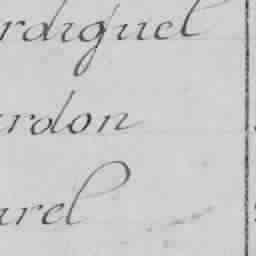 rdiguel
ardon
arel